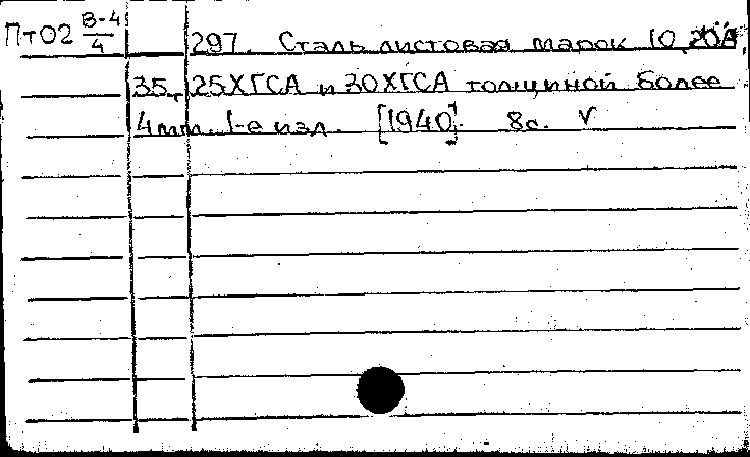 ПтО2 В-4/4 297. Сталь листовая марок 10, 20А,
35, 25ХГСА и 30ХГСА толщиной более
4мм. 1-е изд. [1940]. 8с. v